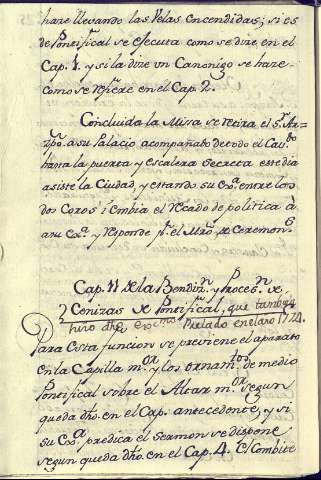 haze llevando las Velas encendidas; si es
de Pontifical se executa como se dixe en el
Cap. 1. y si la dize un Canonigo se haze
como se refiere en el Cap. 2.
Concluida la Missa se retira el S.r Ar-
zpo. a su Palacio acompañado de todo el Cav.do
hasta la puerta y escalera secreta este dia
asiste la Ciudad, y estando su Exa. entre los
dos Coros imbia el recado de politica à
a su Exa. y responde pr. el Mro. de Ceremon.s
Cap. 11 de la Bendiz.n y Proces.n de
Cenizas de Pontifical, que tambn
hizo dho. exmo. Prelado en el año 1774.
Para esta funcion se previene el aparato
en la Capilla mor. y los ornam.tos de medio
Pontifical sobre el Altar mor. segun
queda dho. en el Cap. antecedente, y si
su Exa. predica el Sermon se dispone
segun queda dho. en el Cap. 4. El Combite